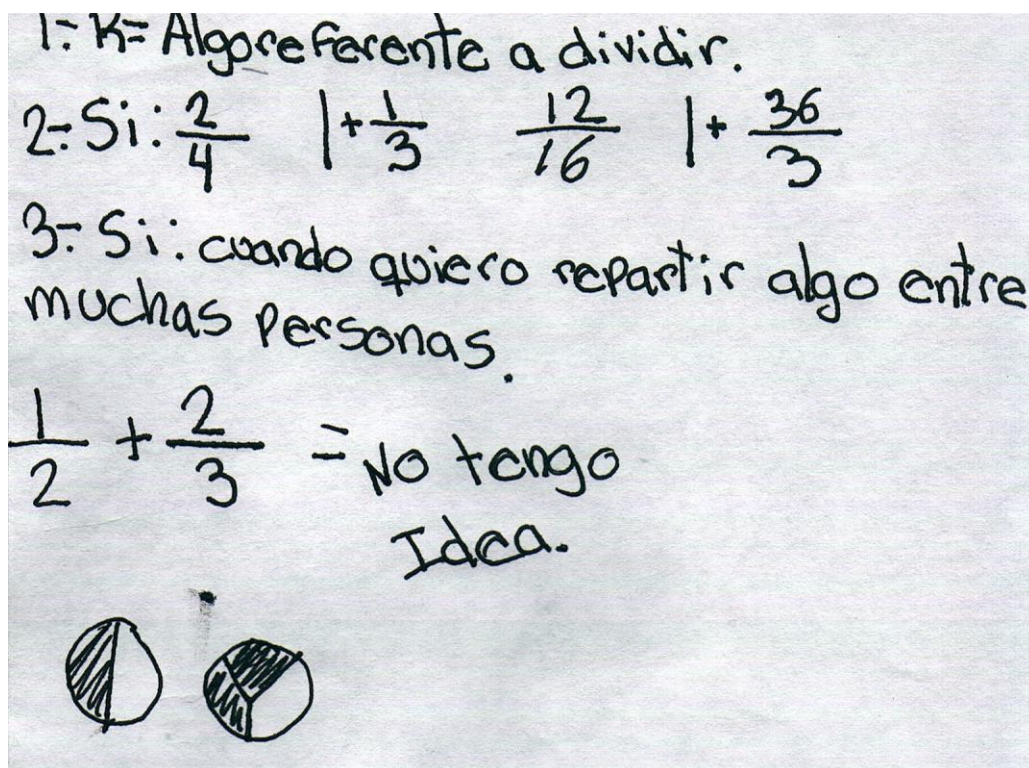 1-. R= Algo referente a dividir.
2-. Si: 2/4 1+1/3 12/16 1+ 36/3
3-. Si: cuando quiero repartir algo entre
muchas personas.
1/2 + 2/3 = No tengo
Idea.